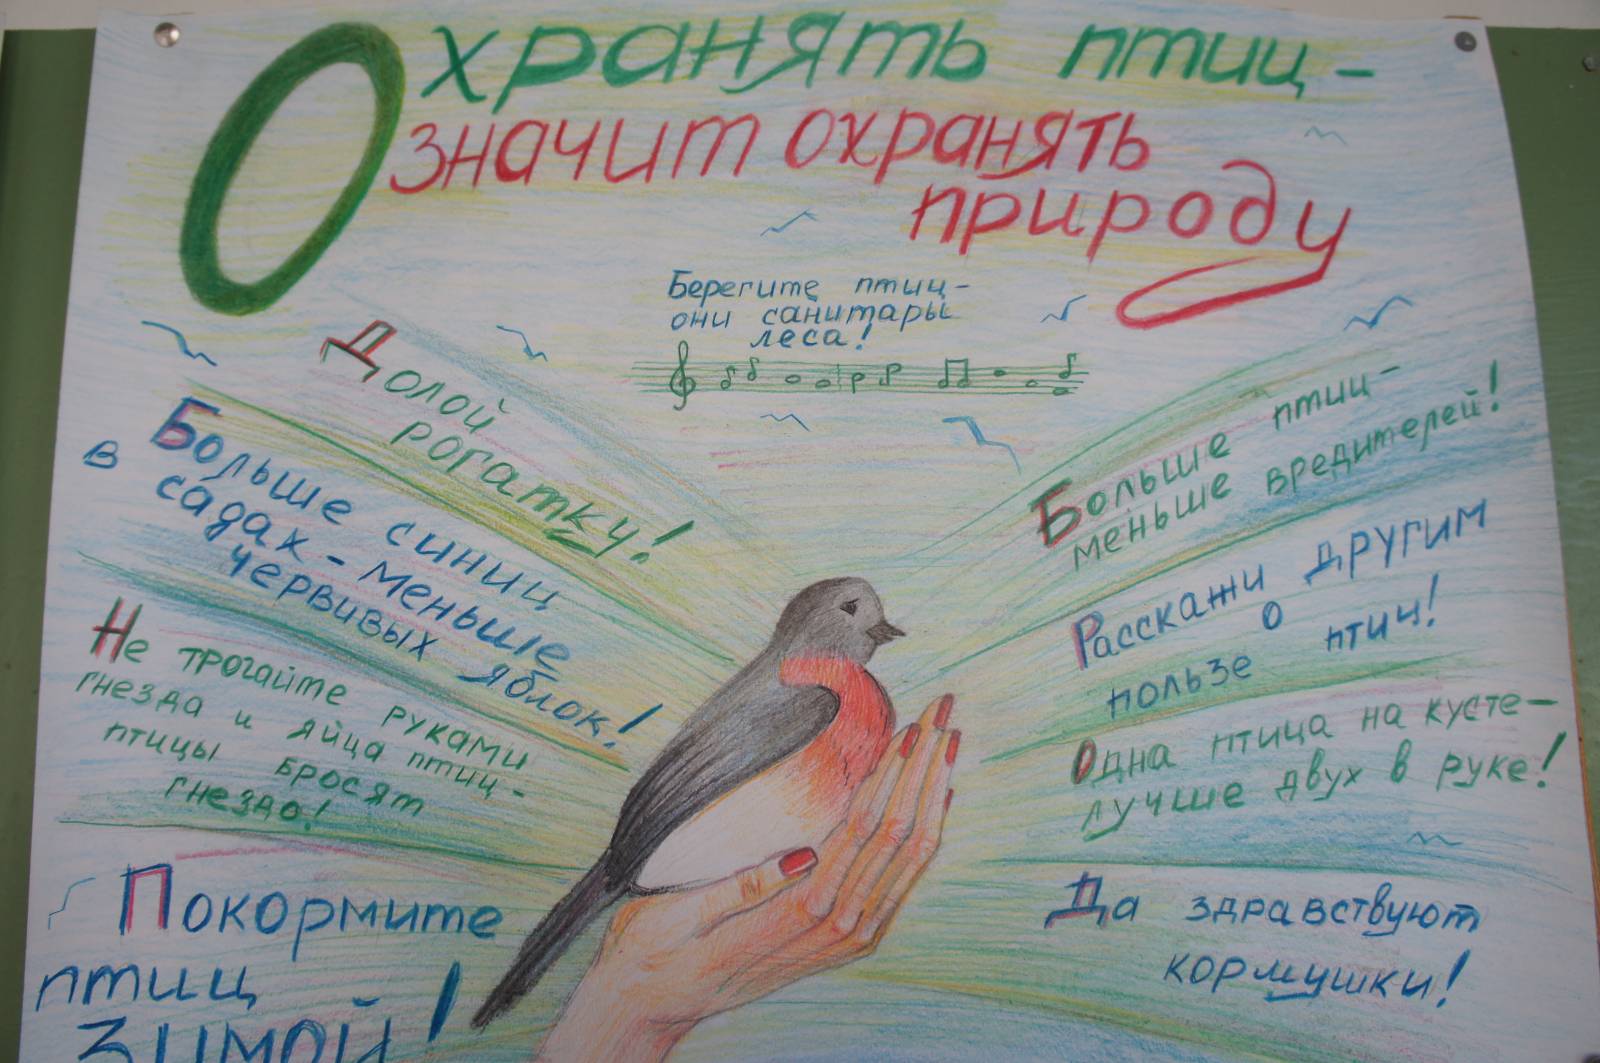 Охранять птиц -
значит охранять
природу
Берегите птиц-
они санитары
леса!
Долой
рогатку!
Больше синиц
в садах - меньше
червивых яблок!
Не трогайте руками
гнезда и яйца птиц-
птицы бросят
гнездо!
Покормите
птиц
зимой!
Больше птиц-
меньше вредителей!
Расскажи другим
о
пользе птиц!
Одна птица на кусте-
лучше двух в руке!
Да здравствуют
кормушки!